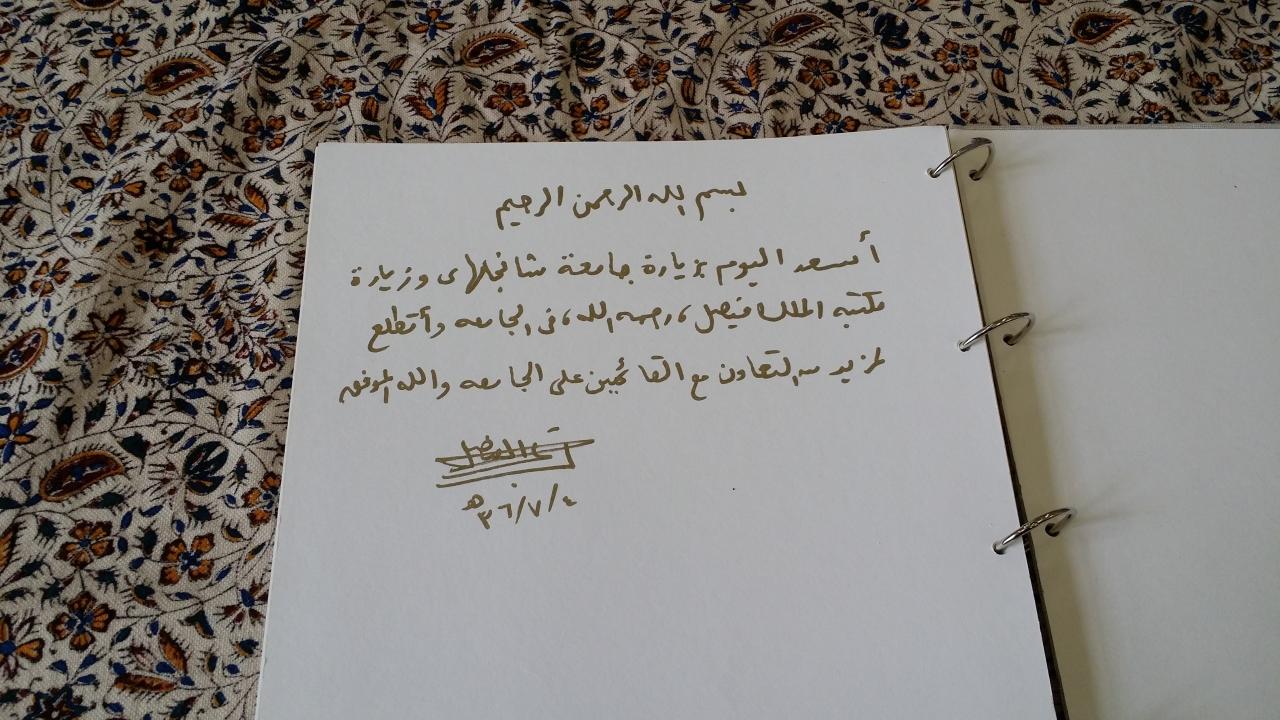 بسم الله الرحمن الرحيم
أسعد اليوم بزيارة جامعة شانجلهاى وزيارة
مكتبة الملك فيصل، رحمه الله، فى الجامعه وأتطلع
لمزيد من التعاون مع القائمين على الجامعه والله الموفق
٤/٧/٣٦هـ